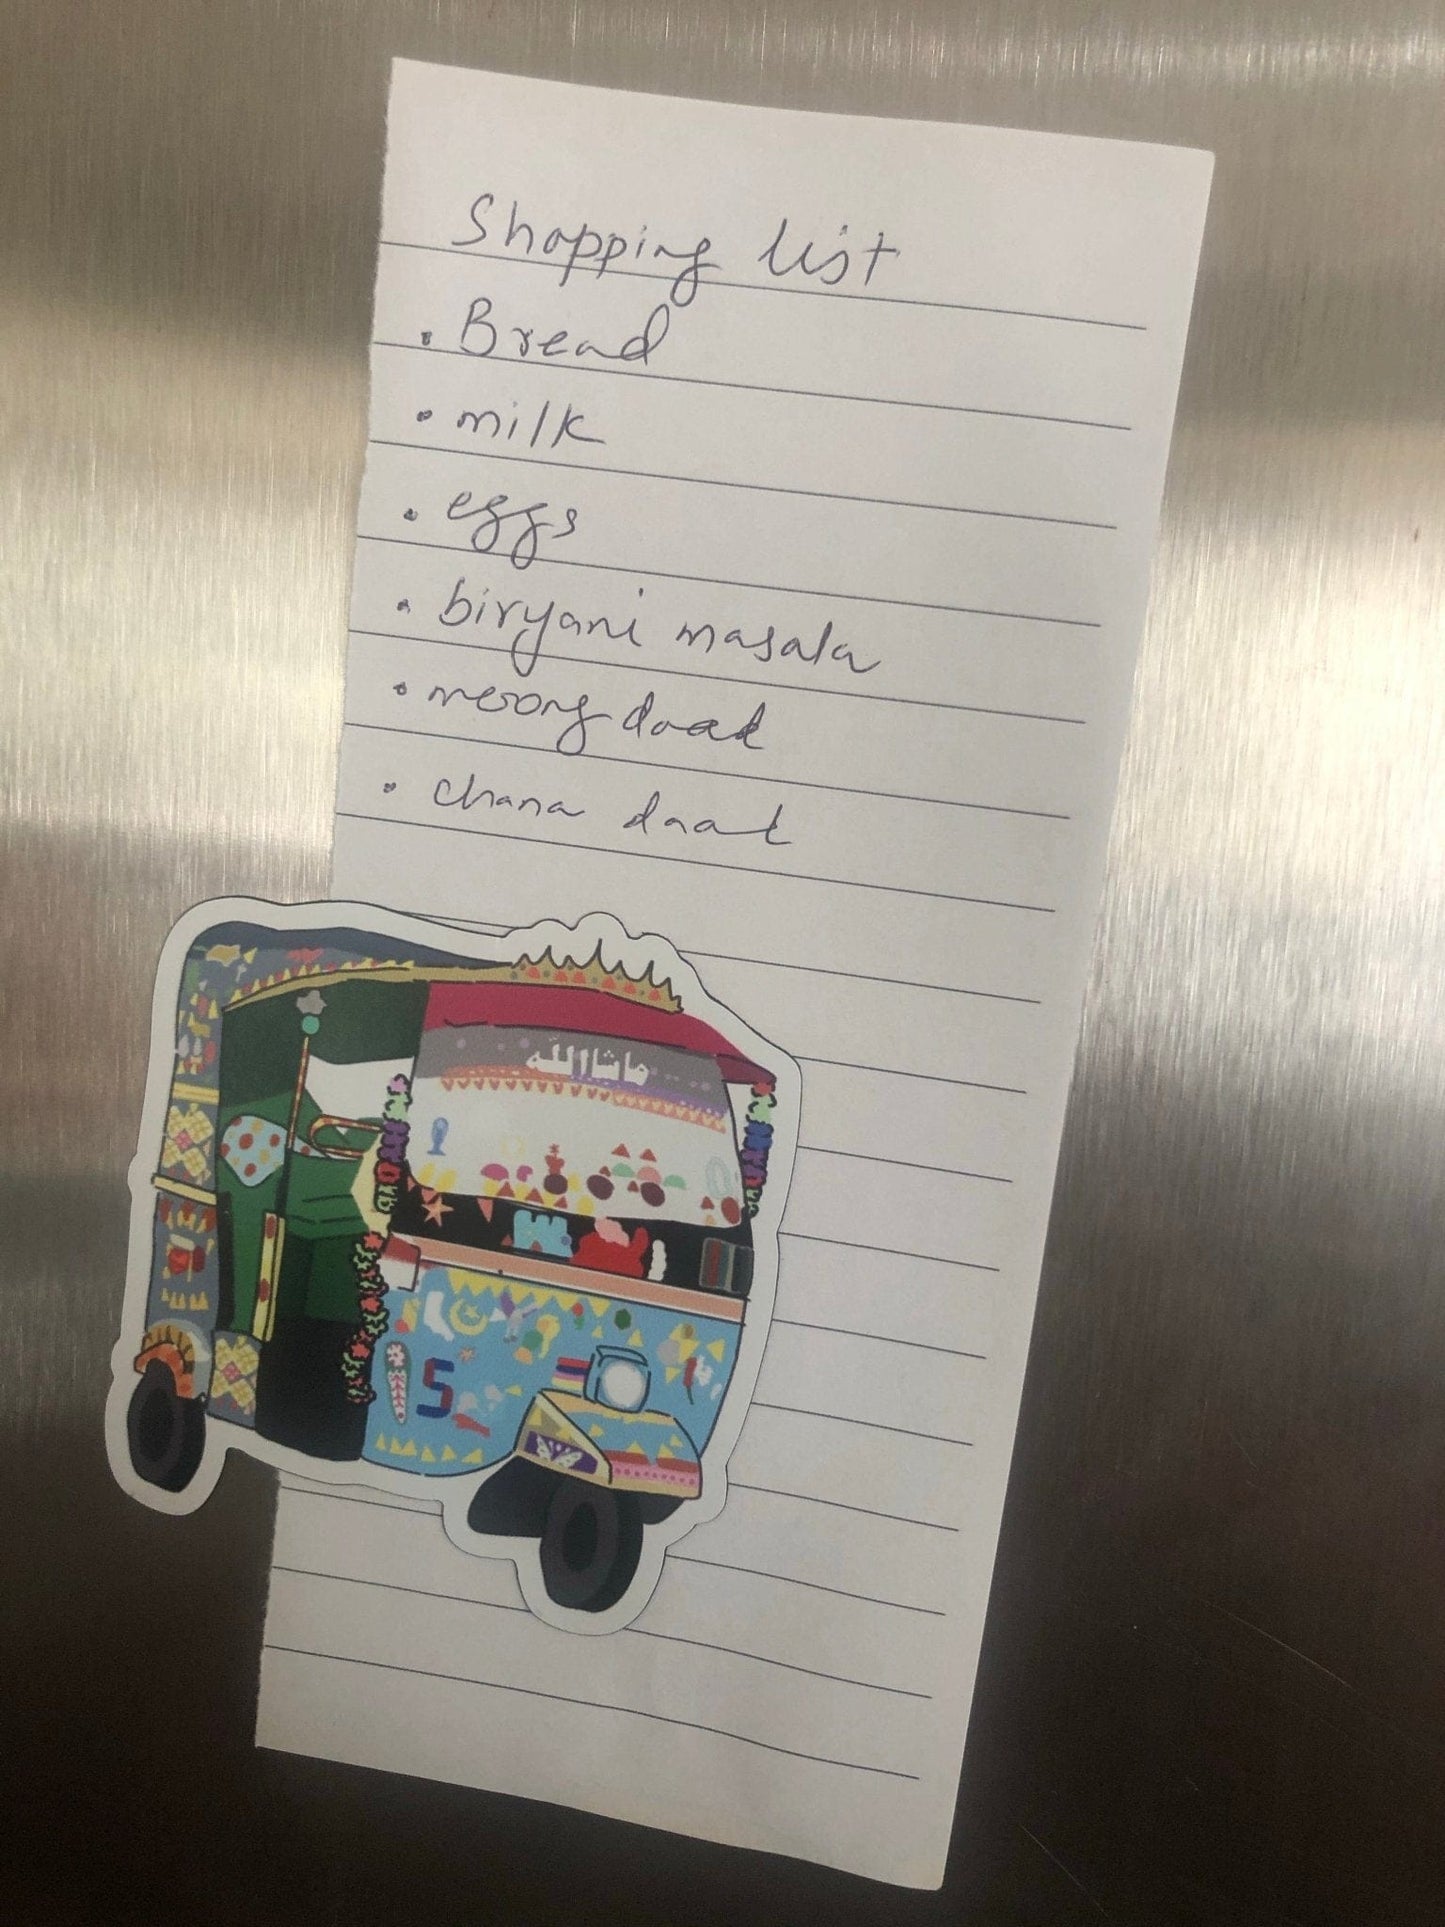 Shopping list
• Bread
• milk
• eggs
• biryani masala
• moong daal
• chana daal
ماشااللہ
5